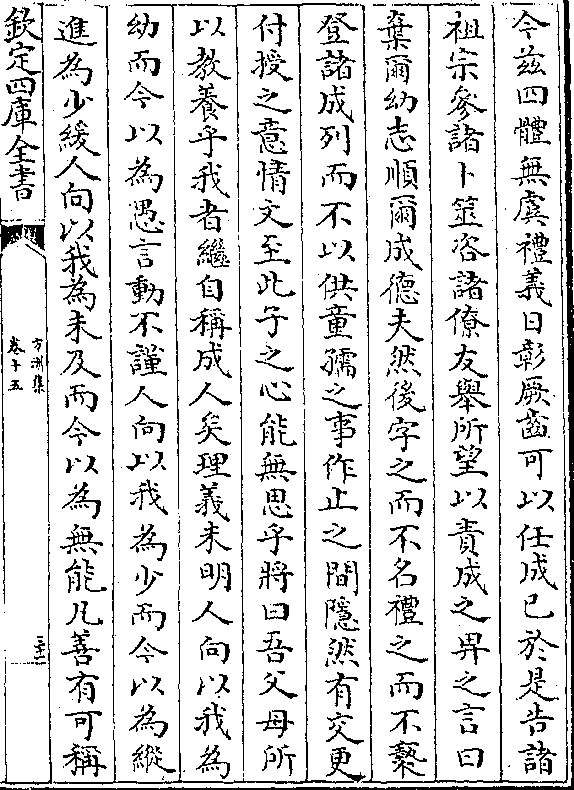 今茲四體無虞禮義日彰厥齒可以任成已於是告諸
祖宗參諸卜筮咨諸僚友舉所望以責成之畀之言曰
棄爾幼志順爾成德夫然後字之而不名禮之而不褻
登諸成列而不以供童孺之事作止之間隱然有交更
付授之意情文至此子之心能無思乎將曰吾父母所
以教養乎我者繼自稱成人矣理義未明人向以我為
幼而今以為愚言動不謹人向以我為少而今以為縱
進為少緩人向以我為未及而今以為無能凡善有可稱
欽定四庫全書
方洲集
卷十五
三十一